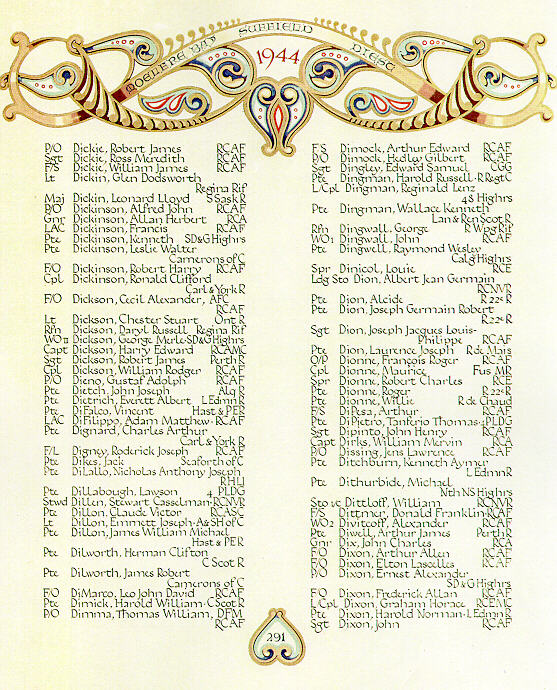 MOELFRE BAY SUFFIELD DIEST
1944
P/O Dickie, Robert James RCAF
Sgt Dickie, Ross Meredith RCAF
F/S Dickie, William James RCAF
Lt Dickin, Glen Dodsworth
Regina Rif
Maj Dickin, Leonard Lloyd S Sask R
P/O Dickinson, Alfred John RCAF
Gnr Dickinson, Allan Herbert RCA
LAC Dickinson, Francis RCAF
Pte Dickinson, Kenneth SD&G Highrs
Pte Dickinson, Leslie Walter
Camerons of C
F/O Dickinson, Robert Harry RCAF
Cpl Dickinson, Ronald Clifford
Carl & York R
F/O Dickson, Cecil Alexander, AFC
RCAF
Lt Dickson, Chester Stuart Ont R
Rfn Dickson, Daryl Russell Regina Rif
WO II Dickson, George Merle-SD&G Highrs
Capt Dickson, Harry Edward RCAMC
Sgt Dickson, Robert James Perth R
Cpl Dickson, William Rodger RCAF
P/O Dieno, Gustaf Adolph RCAF
Pte Dietch, John Joseph Alq R
Pte Dietrich, Everett Albert L Edmn R
Pte DiFalco, Vincent Hast & PER
LAC DiFilippo, Adam Matthew-RCAF
Pte Dignard, Charles Arthur
Carl & York R
F/L Digney, Roderick Joseph RCAF
Pte Dikes, Jack Seaforth of C
Pte DiLallo, Nicholas Anthony Joseph
RHLI
Pte Dillabough, Lawson 4 PLDG
Stwd Dillen, Stewart Casselman-RCNVR
Pte Dillon, Claude Victor RCASC
Lt Dillon, Emmett Joseph-A & SH of C
Pte Dillon, James William Michael
Hast & PER
Pte Dilworth, Herman Clifton
C Scot R
Pte Dilworth, James Robert
Camerons of C
F/O DiMarco, Leo John David RCAF
Pte Dimick, Harold William-C Scot R
P/O Dimma, Thomas William, DFM
RCAF
F/S Dimock, Arthur Edward RCAF
P/O Dimock, Hedley Gilbert RCAF
Sgt Dingley, Edward Samuel CGG
Pte Dingman, Harold Russell-R Regt C
L/Cpl Dingman, Reginald Lenz
48 Highrs
Pte Dingman, Wallace Kenneth
Lan & Ren Scot R
Rfn Dingwall, George R Wpg Rif
WO1 Dingwall, John RCAF
Pte Dingwell, Raymond Wesley
Calg Highrs
Spr Dinicol, Louie RCE
Ldg Sto Dion, Albert Jean Germain
RCNVR
Pte Dion, Alcide R 22e R
Pte Dion, Joseph Germain Robert
R 22e R
Sgt Dion, Joseph Jacques Louis-
Philippe RCAF
Pte Dion, Laurence Joseph R de Mais
O/P Dionne, François Roger RCAF
Cpl Dionne, Maurice Fus MR
Spr Dionne, Robert Charles RCE
Pte Dionne, Roger R 22e R
Pte Dionne, Willie R de Chaud
F/S DiPesa, Arthur RCAF
Pte DiPietro, Tanferio Thomas-4 PLDG
Sgt Dipinto, John Henry RCAF
Capt Dirks, William Mervin RCA
P/O Dissing, Jens Lawrence RCAF
Pte Ditchburn, Kenneth Aymer
L Edmn R
Pte Dithurbide, Michael
Nth NS Highrs
Sto 1/c Dittloff, William RCNVR
F/S Dittmer, Donald Franklin-RCAF
WO2 Diviteoff, Alexander RCAF
Pte Diwell, Arthur James Perth R
Gnr Dix, John Charles RCA
F/O Dixon, Arthur Allen RCAF
F/O Dixon, Elton Lascelles RCAF
P/O Dixon, Ernest Alexander
SD&G Highrs
F/O Dixon, Frederick Allan RCAF
L/Cpl Dixon, Graham Horace RCEMC
Pte Dixon, Harold Norman-L Edmn R
Sgt Dixon, John RCAF
291